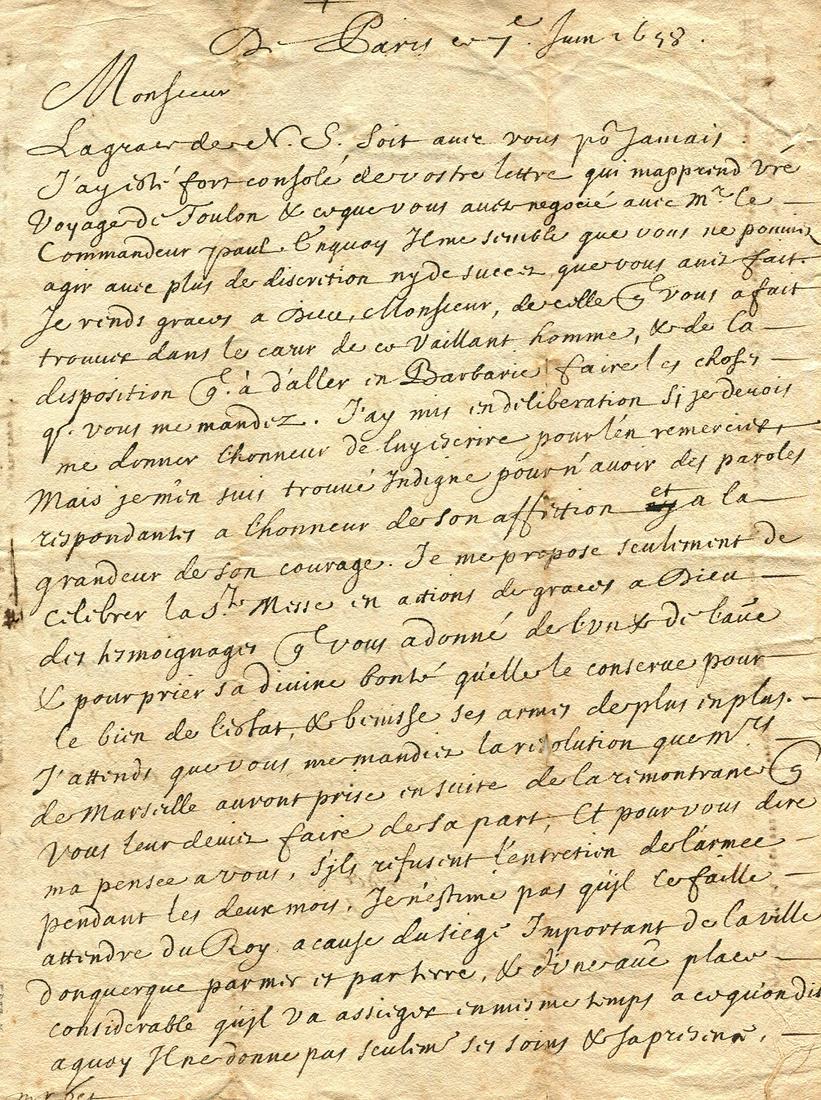 De Paris ce 7e Juin 1658.
Monsieur
La grace de N. S. soit avec vous po~ Jamais.
J'ay esté fort consolé de vostre lettre qui mapprend vré
Voyage de Toulon & ce que vous avez negocié avec Mr. le
Commandeur paul. Enquoy Il me semble que vous ne pouviez
agir avec plus de discretion ny de succez que vous avez fait.
Je rends graces a Dieu, Monsieur, de celle q~ vous a fait
trouver dans le cœur de ce Vaillant homme, & de la
disposition q~. à d'aller en Barbarie faire les choses
q~. vous me mandez. J'ay mis en deliberation Si je devois
me donner l'honneur de luy escrire pour l'en remercier,
Mais je m'en suis trouvé Indigne pour n'avoir des paroles
respondantes a l'honneur de son affection et a la
grandeur de son courage. Je me propose seulement de
celebrer la Ste Messe en actions de graces a Dieu
des tesmoignages q~ vous a donné de l'un & de l'aũe
& pour prier sa divine bonté qu'elle le conserve pour
le bien de l'estat, & benisse ses armes de plus en plus.
J'attends que vous me mandiez la resolution que Mrs
de Marseille auront prise en suite de la remontrance q~
Vous leur deviez faire de sa part, Et pour vous dire
ma pensee a vous, S'jls refusent l'entretien de l'armee
pendant les deux mois, Je n'estime pas qu'jl le faille
attendre du Roy a cause du siege Important de la ville
donquerque par mer et par terre, & d'une aũe place
considerable qu'jl va assieger en mesme temps a ce qu'on dit
a quoy Il ne donne pas seulemt ses soins & sa presence,